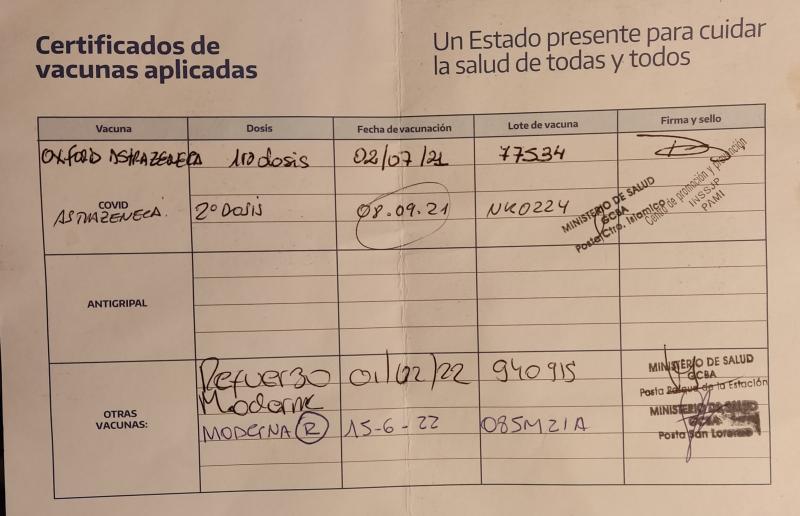 Certificados de
vacunas aplicadas
Un Estado presente para cuidar
la salud de todas y todos
Vacuna Dosis Fecha de vacunación Lote de vacuna Firma y sello
OXFORD ASTRAZENECA 1ra dosis 02/07/21 77534
Centro de promoción y prevención
INSSJP
PAMI
COVID
ASTRAZENECA. 2º Dosis 08.09.21 NK0224
MINISTERIO DE SALUD
GCBA
Posta Ctro. Islamico
ANTIGRIPAL
Refuerzo 01/02/22 940915
Moderna
MINISTERIO DE SALUD
GCBA
Posta Parque de la Estación
OTRAS
VACUNAS:
MODERNA R 15-6-22 085M21A
MINISTERIO DE SALUD
GCBA
Posta San Lorenzo